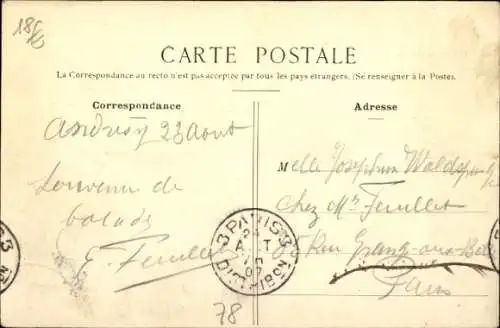 CARTE POSTALE
La Correspondance au recto n'est pas acceptée par tous les pays étrangers. (Se renseigner à la Poste).
Correspondance
Adresse
Andrésy 23 Août
Souvenir de
balade
E. Feuillet
Melle Joséphine
chez Mr Feuillet
Rue Grange aux Belles
Paris
PARIS
DISTRIBON
78